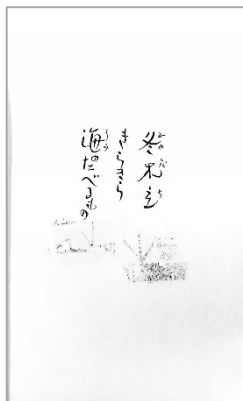 冬木立
きらきら
海のたべるもの